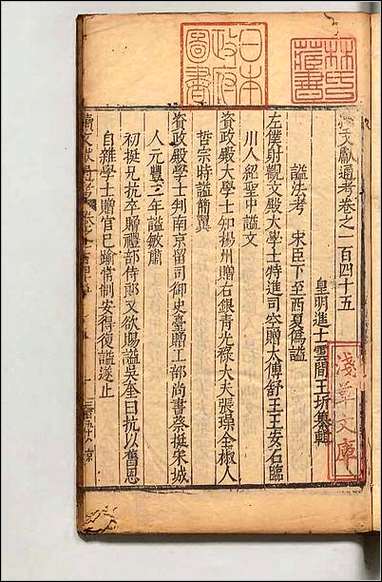 續文獻通考卷之一百四十五
皇明進士雲間王圻纂輯
謚法考　宋臣下至西夏僞謚
左僕射觀文殿大學士特進司空贈太傅舒王王安石臨
川人紹聖中謚文
資政殿大學士知揚州贈右銀青光祿大夫張璪全椒人
哲宗時謚簡翼
資政殿學士判南京留司御史臺贈工部尚書蔡挺宋城
人元豐二年謚敏肅
初挺兄抗卒贈禮部侍郎又欲賜謚吳奎曰抗以舊恩
自雜學士贈官已踰常制安得復謚遂止
續文獻通考
日本政府圖書
林氏藏書
淺草文庫